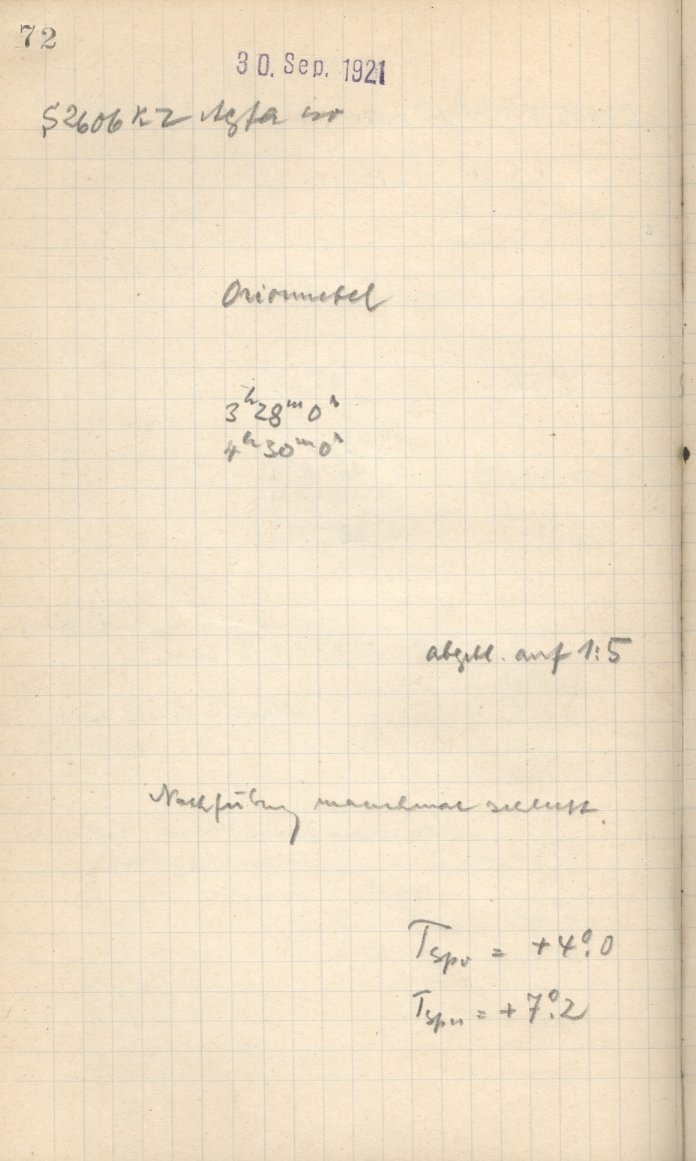 72
30. Sep. 1921
S2606 KZ Agfa iso
Orionnebel
3ʰ28ᵐ0ˢ
4ʰ30ᵐ0ˢ
abgebl. auf 1:5
Nachführung manchmal schlecht.
T = +4°.0
T = +7°.2